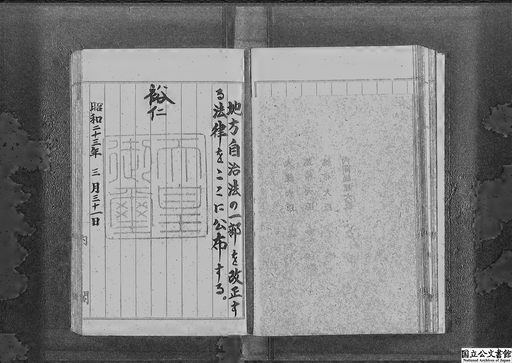 地方自治法の一部を改正す
る法律をここに公布する。
裕仁
天皇
御璽
昭和二十三年 三月三十一日
内閣
国立公文書館
National Archives of Japan